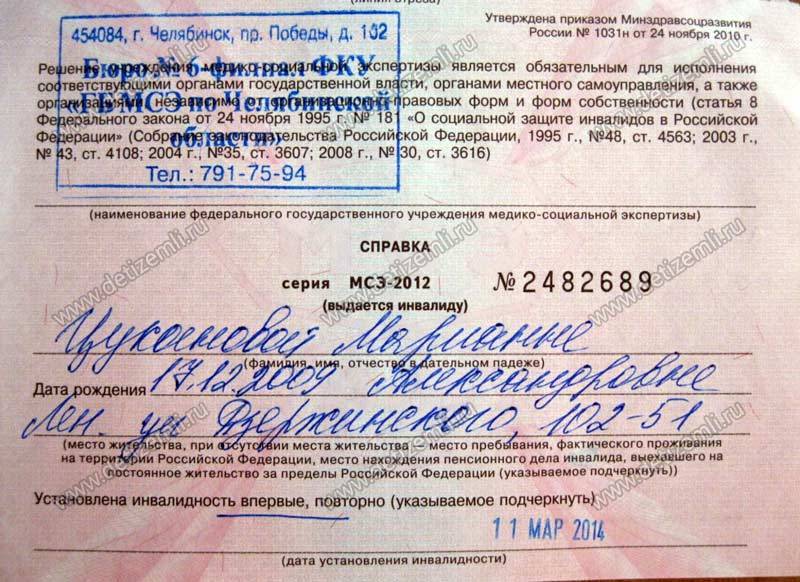 (линия отреза)
Утверждена приказом Минздравсоцразвития
России № 1031н от 24 ноября 2010 г.
454084, г. Челябинск, пр. Победы, д. 102
Бюро № 6-филиал ФКУ
«ГБ МСЭ по Челябинской
области»
Тел.: 791-75-94
Решение учреждения медико-социальной экспертизы является обязательным для исполнения
соответствующими органами государственной власти, органами местного самоуправления, а также
организациями независимо от организационно-правовых форм и форм собственности (статья 8
Федерального закона от 24 ноября 1995 г. № 181 «О социальной защите инвалидов в Российской
Федерации» (Собрание законодательства Российской Федерации, 1995 г., №48, ст. 4563; 2003 г.,
№ 43, ст. 4108; 2004 г., №35, ст. 3607; 2008 г., № 30, ст. 3616)
(наименование федерального государственного учреждения медико-социальной экспертизы)
СПРАВКА
серия МСЭ-2012 № 2482689
(выдается инвалиду)
Цукановой Марианне
(фамилия, имя, отчество в дательном падеже)
Дата рождения 17.12.2009 Александровне
Лен. ул Дзержинского, 102-51
(место жительства, при отсутствии места жительства — место пребывания, фактического проживания
на территории Российской Федерации, место нахождения пенсионного дела инвалида, выехавшего на
постоянное жительство за пределы Российской Федерации (указываемое подчеркнуть))
Установлена инвалидность впервые, повторно (указываемое подчеркнуть)
11 МАР 2014
(дата установления инвалидности)
www.detizemli.ru